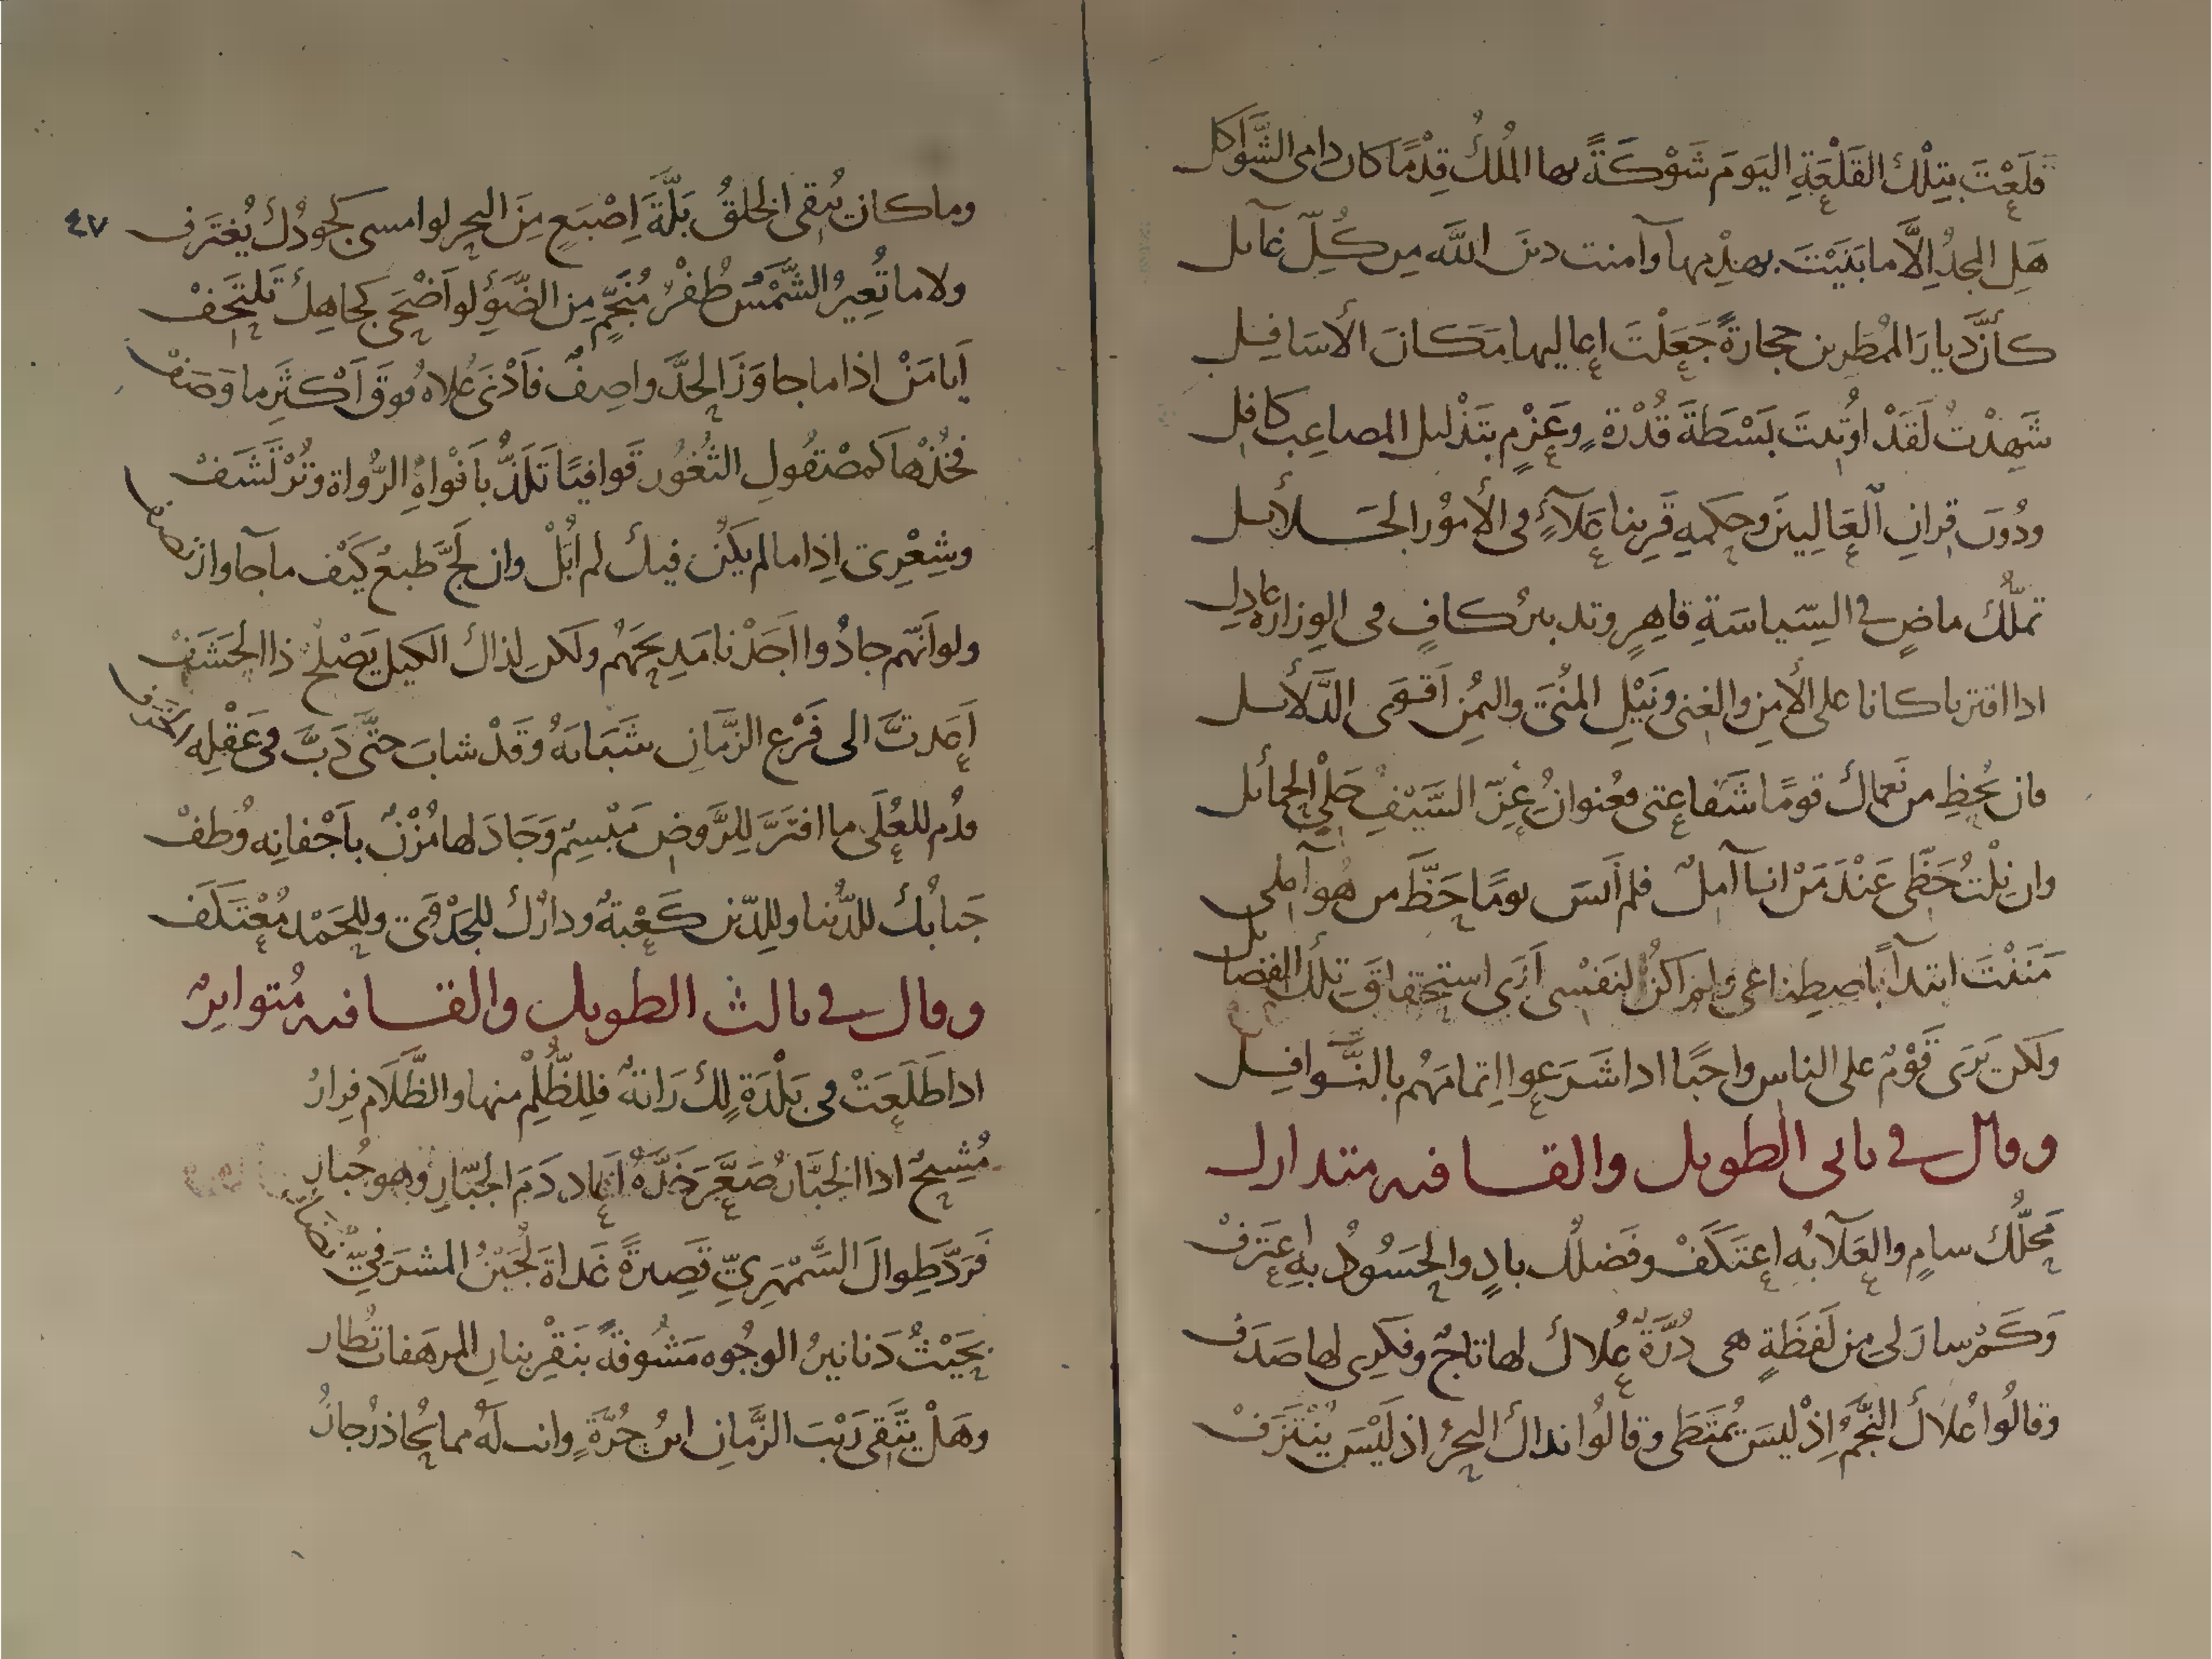 قلَعْتَ بتِلْكَ القَلْعَةِ اليَومَ شَوْكَةً بها المُلكُ قِدْمًا كان دامى الشَّواكل
هَلِ المجدُ اِلَّا ما بَنَيْتَ بهَدْمِها وآمنت دينَ اللَّه مِن كُلِّ غآئل
كأنَّ ديارَ المُطرِبن حجارةً جَعَلْتَ اعاليها مَكانَ الأسَافِل
شَهِدْتُ لَقَدْ اوُتيتَ بَسْطَةَ قُدْرةٍ وعَزمٍ بتَذْليل المصاعِب كافل
ودُونَ قرانِ العَالِيينَ وحكمِهِ قَرِينا عَلآءٍ فى الأمُور الجَلائل
تملُّك ماضٍ في السِّياسَةِ قاهِرٍ وتدبيرُ كافٍ فى الوِزارةِ عادِلِ
اذا اقترنا كانا على الأمنِ والغِنى ونَيْلِ المُنَى واليُمنِ اَقوَى الدَّلائل
فان يَحْظِ من نَعماك قومًا شَفاعتى فعُنوانُ عِزِّ السَّيْفِ حَلْىُ الحمائل
وان نِلْتُ حَظّى عَنْدَ مَنْ انا آملٌ فلم اَنسَ يومًا حَظَّ من هُو آملى
مَنَنْتَ ابتدآءً باصطِناعى ولم اَكنْ لنَفْسى اَرَى استحقاقَ تلك الفضائل
ولكن يَرَى قَوْمٌ على الناس واجبًا اذا شَرَعوا اِتمامَهُم بالنَّوافِل
وقال في ثانى الطويل والقافيه متدارك
مَحَلُّك سامٍ والعَلآءُ بهِ اعتَكَفْ وفَضلُك بادٍ والحَسُودُ بهِ اعتَرَفْ
وَكَم سارَ لى مِن لَفظَةٍ هى دُرَّةٌ عُلاكَ لها تاجٌ وفكرِى لها صَدَف
وقالُوا عُلاكَ النَّجمُ اِذْ ليسَ يُمتَطَى وقالُوا نداكَ البحرُ اذ لَيْسَ يُنْتَزَفْ
٤٧
وما كان يُبقى الخلقُ بَلَّةَ اِصْبَعٍ مِنَ البحر لوا مسى كجودِكَ يُغتَرَف
ولا ما تُعِيرُ الشَّمْسُ ظُفْرَ مُنَجِّمٍ مِن الضَّوْءِ لو اَضْحَى كجاهِكَ تَلتَحِفْ
اَيا مَنْ اذا ما جاوَزَ الحدَّ واصِفٌ فاَدْنَى عُلاهُ فوقَ اَكثَرِ ما وَصَفْ
فخُذْها كمصْقُولِ الثُّغُور قَوافيًا تَلَذُّ باَفْواهِ الرُّواة وتُرْتَشَفْ
وشِعْرِى اِذا ما لم يَكُن فيك لم اُبَلْ وان لَجَّ طبعٌ كَيْف ما جآ واتَّصفْ
ولو اَنّهم جادُوا اَجَدْنا مَدِيحَهُم ولكن لِذاك الكيلِ يَصْلُحُ ذا الحَشَفْ
اَعَدتَّ الى فَرْعِ الزَّمَانِ شَبَابَهُ وقَدْ شابَ حتَّى دَبَّ فى عَقْلِه الخَرَف
فدُم للعُلَى ما افتَرَّ لِلرَّوضِ مَبْسِمٌ وَجَادَ لها مُزْنٌ باَجْفانِه وُطفْ
جَنابُك للدُّنيا وللِدّين كَعْبَةٌ ودارُك للجَدْوَى وللحَمْد مُعْتَكَف
وقال في ثالث الطويل والقافيه مُتواترٌ
اذا طَلَعَتْ فى بَلْدَةٍ لك رَايةٌ فلِلظُّلْمِ منها والظَّلَام فِرارُ
مُشِيحٌ اذا الجَبَّارُ صَعَّرَ خَدَّهُ اَعاد دَمَ الجَبّارِ وهو جُبار
فَرَدَّ طِوالَ السَّمْهَرِىِّ قَصِيرةً غَداةَ لُجَيْنُ المشرَفِىِّ نُضار
بحَيْثُ دَنانيرُ الوجُوه مَشُوفةٌ بنَقْرِ بنانِ المرهَفات تُطار
وهَلْ يَتَّقى رَيْبَ الزَّمانِ ابنُ حُرَّةٍ وانت لَه مما يُحاذرُ جارُ